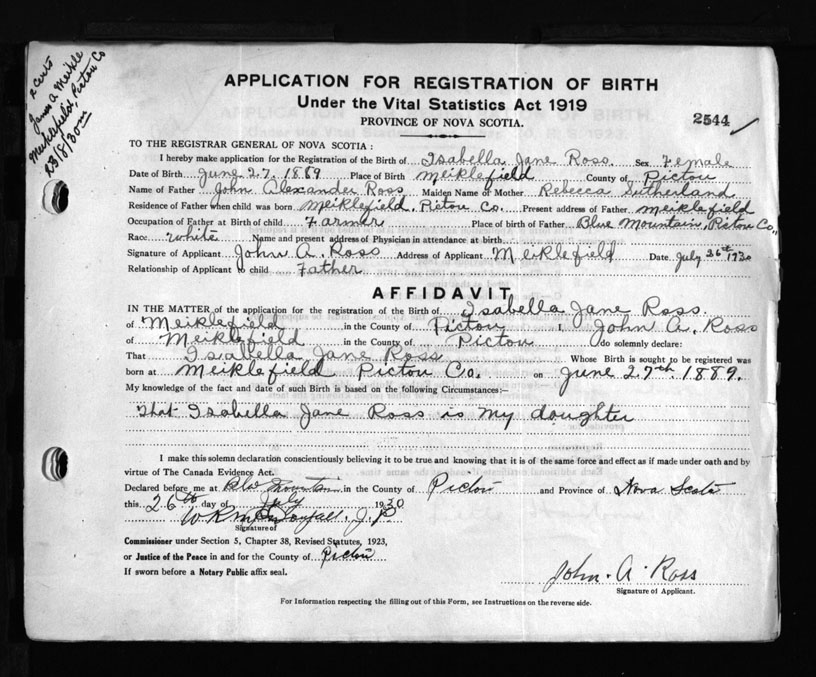 2 certs
James A. Meikle
Meiklefield, Pictou Co
23/8/30
APPLICATION FOR REGISTRATION OF BIRTH
Under the Vital Statistics Act 1919
PROVINCE OF NOVA SCOTIA.
2544
TO THE REGISTRAR GENERAL OF NOVA SCOTIA :
I hereby make application for the Registration of the Birth of Isabella Jane Ross. Sex Female
Date of Birth June 27, 1889 Place of Birth Meiklefield County of Pictou
Name of Father John Alexander Ross Maiden Name of Mother Rebecca Sutherland
Residence of Father when child was born Meiklefield, Pictou Co. Present address of Father Meiklefield
Occupation of Father at Birth of child Farmer Place of birth of Father Blue Mountain, Pictou Co.,
Race White Name and present address of Physician in attendance at birth
Signature of Applicant John A. Ross Address of Applicant Meiklefield Date July 26th 1930
Relationship of Applicant to child Father
AFFIDAVIT
IN THE MATTER of the application for the registration of the Birth of Isabella Jane Ross.
of Meiklefield in the County of Pictou I, John A. Ross
of Meiklefield in the County of Pictou do solemnly declare:
That Isabella Jane Ross Whose Birth is sought to be registered was
born at Meiklefield Pictou Co. on June 27th 1889.
My knowledge of the fact and date of such Birth is based on the following Circumstances:—
That Isabella Jane Ross is my daughter
I make this solemn declaration conscientiously believing it to be true and knowing that it is of the same force and effect as if made under oath and by
virtue of The Canada Evidence Act.
Declared before me at Blue Mountain in the County of Pictou and Province of Nova Scotia
this 26th day of July 1930
J.P.
Signature of
Commissioner under Section 5, Chapter 38, Revised Statutes, 1923,
or Justice of the Peace in and for the County of Pictou
If sworn before a Notary Public affix seal.
John. A. Ross
Signature of Applicant.
For Information respecting the filling out of this Form, see Instructions on the reverse side.